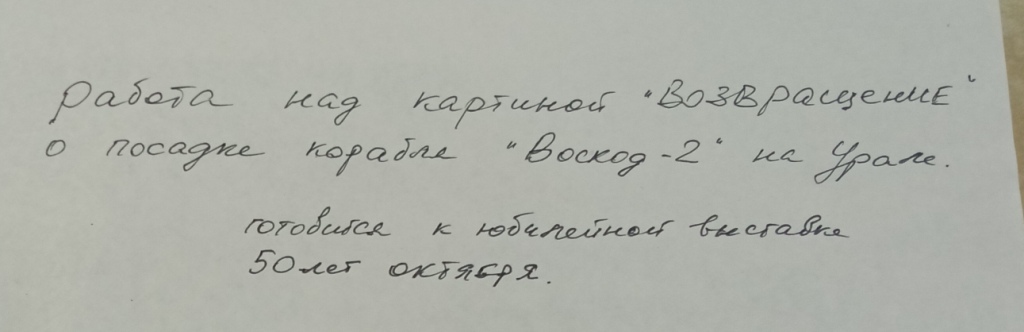 Работа над картиной "Возвращение"
о посадке корабля "Восход-2" на Урале.
готовится к юбилейной выставке
50 лет октября.